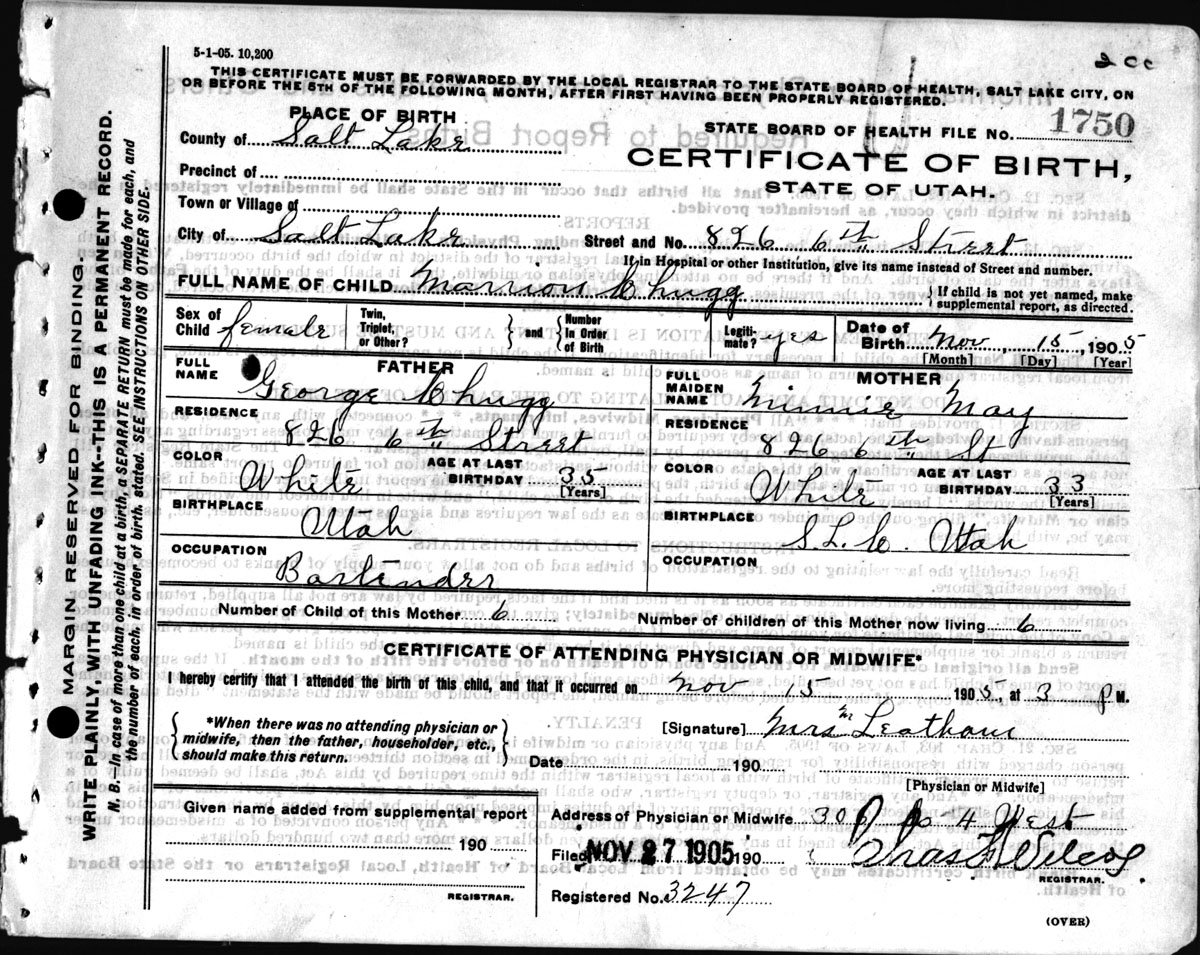 5-1-05. 10,200
2 cc
THIS CERTIFICATE MUST BE FORWARDED BY THE LOCAL REGISTRAR TO THE STATE BOARD OF HEALTH, SALT LAKE CITY, ON
OR BEFORE THE 5TH OF THE FOLLOWING MONTH, AFTER FIRST HAVING BEEN PROPERLY REGISTERED.
PLACE OF BIRTH
STATE BOARD OF HEALTH FILE NO. 1750
County of Salt Lake
CERTIFICATE OF BIRTH,
Precinct of
STATE OF UTAH.
Town or Village of
City of Salt Lake Street and No. 826 6th Street
If in Hospital or other Institution, give its name instead of Street and number.
FULL NAME OF CHILD Marrion Chugg { If child is not yet named, make
supplemental report, as directed.
Sex of Child female Twin, Triplet, or Other? } and { Number In Order of Birth Legiti- mate? yes Date of Birth Nov 15, 1905
[Month] [Day] [Year]
FATHER
FULL NAME George Chugg
RESIDENCE
826 6th Street
COLOR White AGE AT LAST BIRTHDAY 35
[Years]
BIRTHPLACE
Utah
OCCUPATION
Bartender
MOTHER
FULL MAIDEN NAME Minnie May
RESIDENCE
826 6th St
COLOR White AGE AT LAST BIRTHDAY 33
[Years]
BIRTHPLACE
S.L.C. Utah
OCCUPATION
Number of Child of this Mother 6 Number of children of this Mother now living 6
CERTIFICATE OF ATTENDING PHYSICIAN OR MIDWIFE*
I hereby certify that I attended the birth of this child, and that it occurred on Nov 15 1905, at 3 P M.
{ *When there was no attending physician or
midwife, then the father, householder, etc.,
should make this return. }
[Signature] Mrs M Leatham
Date 190
[Physician or Midwife]
Given name added from supplemental report
190
REGISTRAR.
Address of Physician or Midwife 306 4 West
Filed NOV 27 1905 190
REGISTRAR.
Registered No. 3247
(OVER)
MARGIN RESERVED FOR BINDING.
WRITE PLAINLY, WITH UNFADING INK--THIS IS A PERMANENT RECORD.
N. B.—In case of more than one child at a birth, a SEPARATE RETURN must be made for each, and
the number of each, in order of birth, stated. SEE INSTRUCTIONS ON OTHER SIDE.